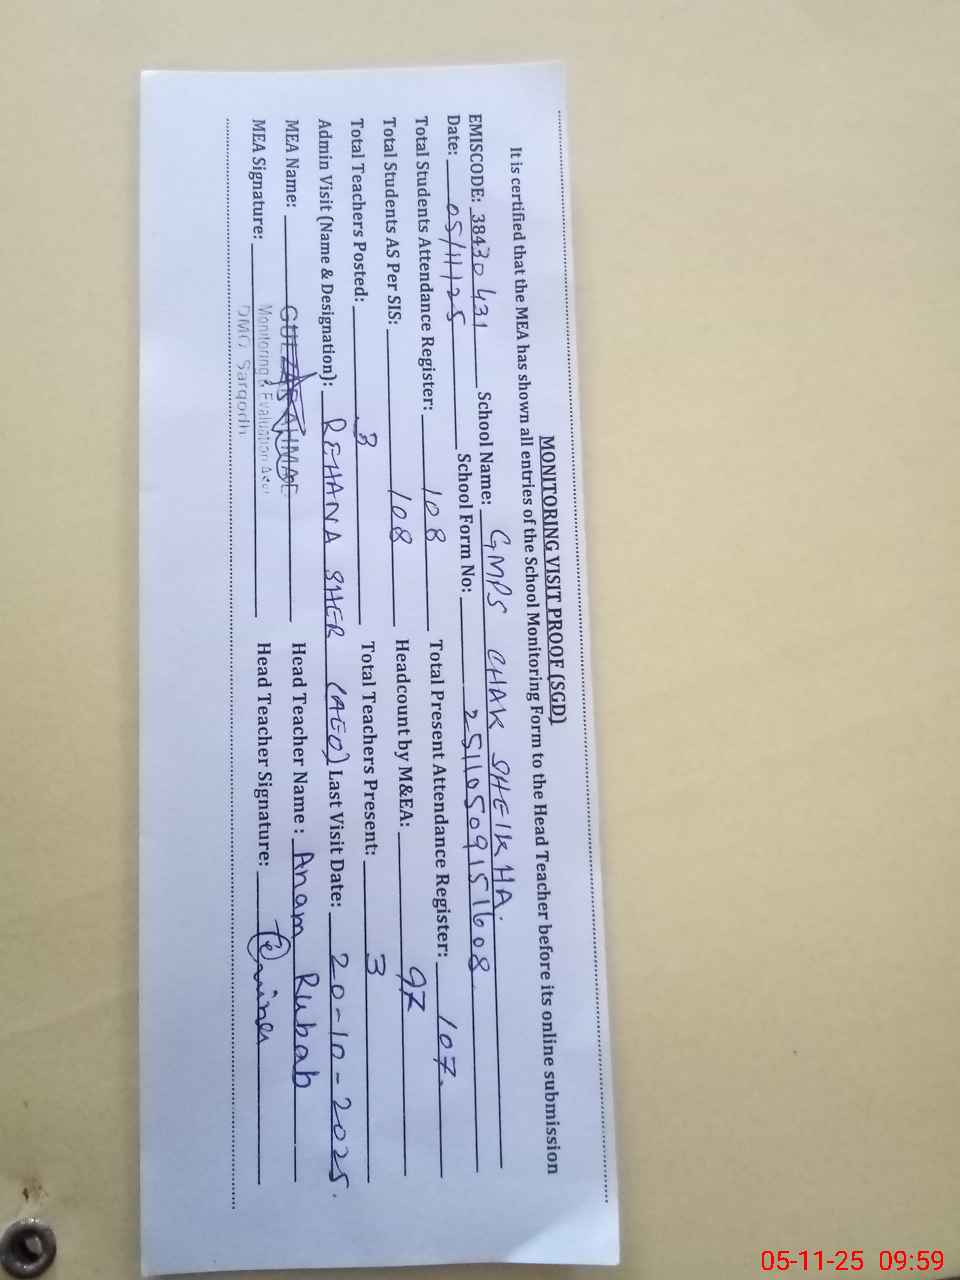 MONITORING VISIT PROOF (SGD)
It is certified that the MEA has shown all entries of the School Monitoring Form to the Head Teacher before its online submission
EMISCODE: 38430431 School Name: GMPS CHAK SHEIKHA.
Date: 05/11/25 School Form No: 25110509151608
Total Students Attendance Register: 108 Total Present Attendance Register: 107.
Total Students AS Per SIS: 108 Headcount by M&EA: 97
Total Teachers Posted: 3 Total Teachers Present: 3
Admin Visit (Name & Designation): REHANA SHER (AEO) Last Visit Date: 20-10-2025.
MEA Name: GULZAR AHMAD Head Teacher Name : Anam Rubab
MEA Signature: Head Teacher Signature:
Monitoring & Evaluation
DMO Sargodh
05-11-25 09:59